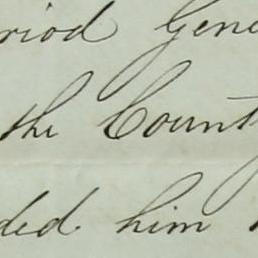 riod Gene
the Count
ded him